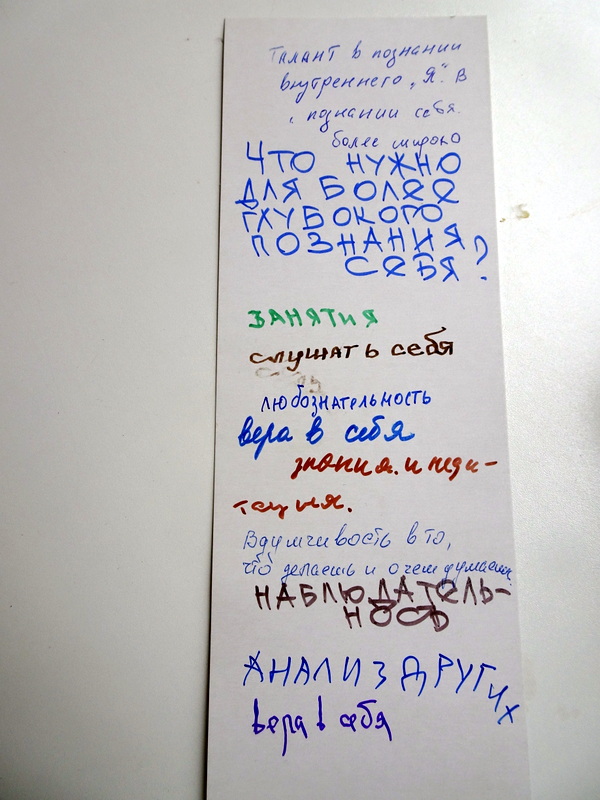 Талант в познании
внутреннего „Я". В
познании себя.
более широко
ЧТО НУЖНО
ДЛЯ БОЛЕЕ
ГЛУБОКОГО
ПОЗНАНИЯ
СЕБЯ?
ЗАНЯТИЯ
слушать себя
любознательность
вера в себя
знания. и меди-
тация.
Вдумчивость в то,
что делаешь и о чем думаешь.
НАБЛЮДАТЕЛЬ-
НОСТЬ
АНАЛИЗ ДРУГИХ
вера в себя